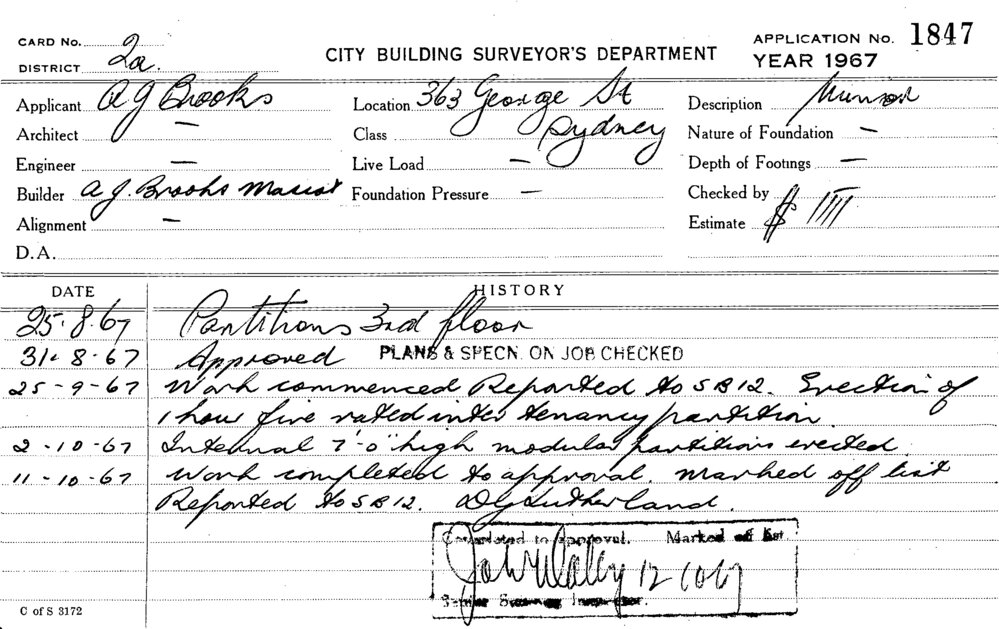 CARD No. 2a.
DISTRICT
CITY BUILDING SURVEYOR'S DEPARTMENT
APPLICATION No. 1847
YEAR 1967
Applicant A J Brooks
Location 363 George St
Sydney
Description
Architect —
Class
Nature of Foundation —
Engineer —
Live Load —
Depth of Footings —
Builder A. J. Brooks Mascot
Foundation Pressure —
Checked by
Alignment —
Estimate $
D.A.
DATE HISTORY
25.8.67 Partitions 3rd floor
31.8.67 Approved PLANS & SPECN. ON JOB CHECKED
25-9-67 Work commenced Reported to SB12. Erection of
1 hour fire rated inter tenancy partition.
2-10-67 Internal 7'-0" high modular partitions erected.
11-10-67 Work completed to approval. Marked off list
Reported to SB12. D G Sutherland.
Completed to Approval. Marked off list
12 10 67
Senior Inspector.
C of S 3172